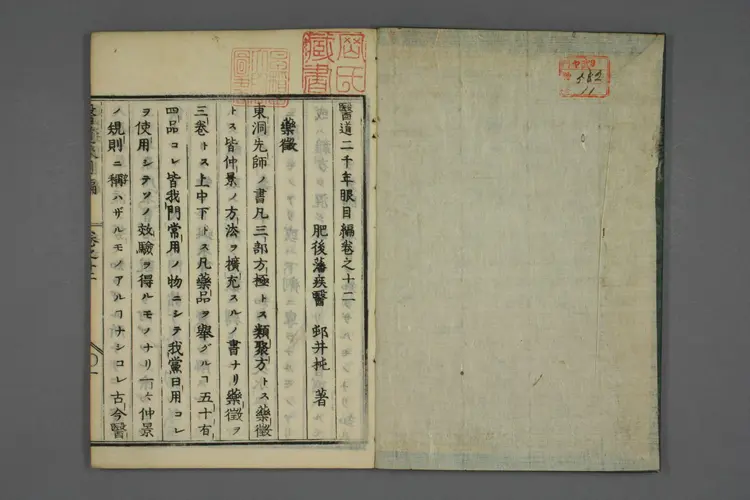 醫道二千年眼目編卷之十二
肥後藩疾醫 邨井杶 著
藥徵
東洞先師ノ書凡三部方極トス類聚方トス藥徵
トス皆仲景ノ方法ヲ擴充スルノ書ナリ藥徵ヲ
三卷トス上中下トス凡藥品ヲ舉グルヿ五十有
四品コレ皆我門常用ノ物ニシテ我黨日用コレ
ヲ使用シテソノ效驗ヲ得ルモノナリ一六仲景
ノ規則ニ稱ハザルモノアルヿナシコレ古今醫
岡氏藏書
582
11